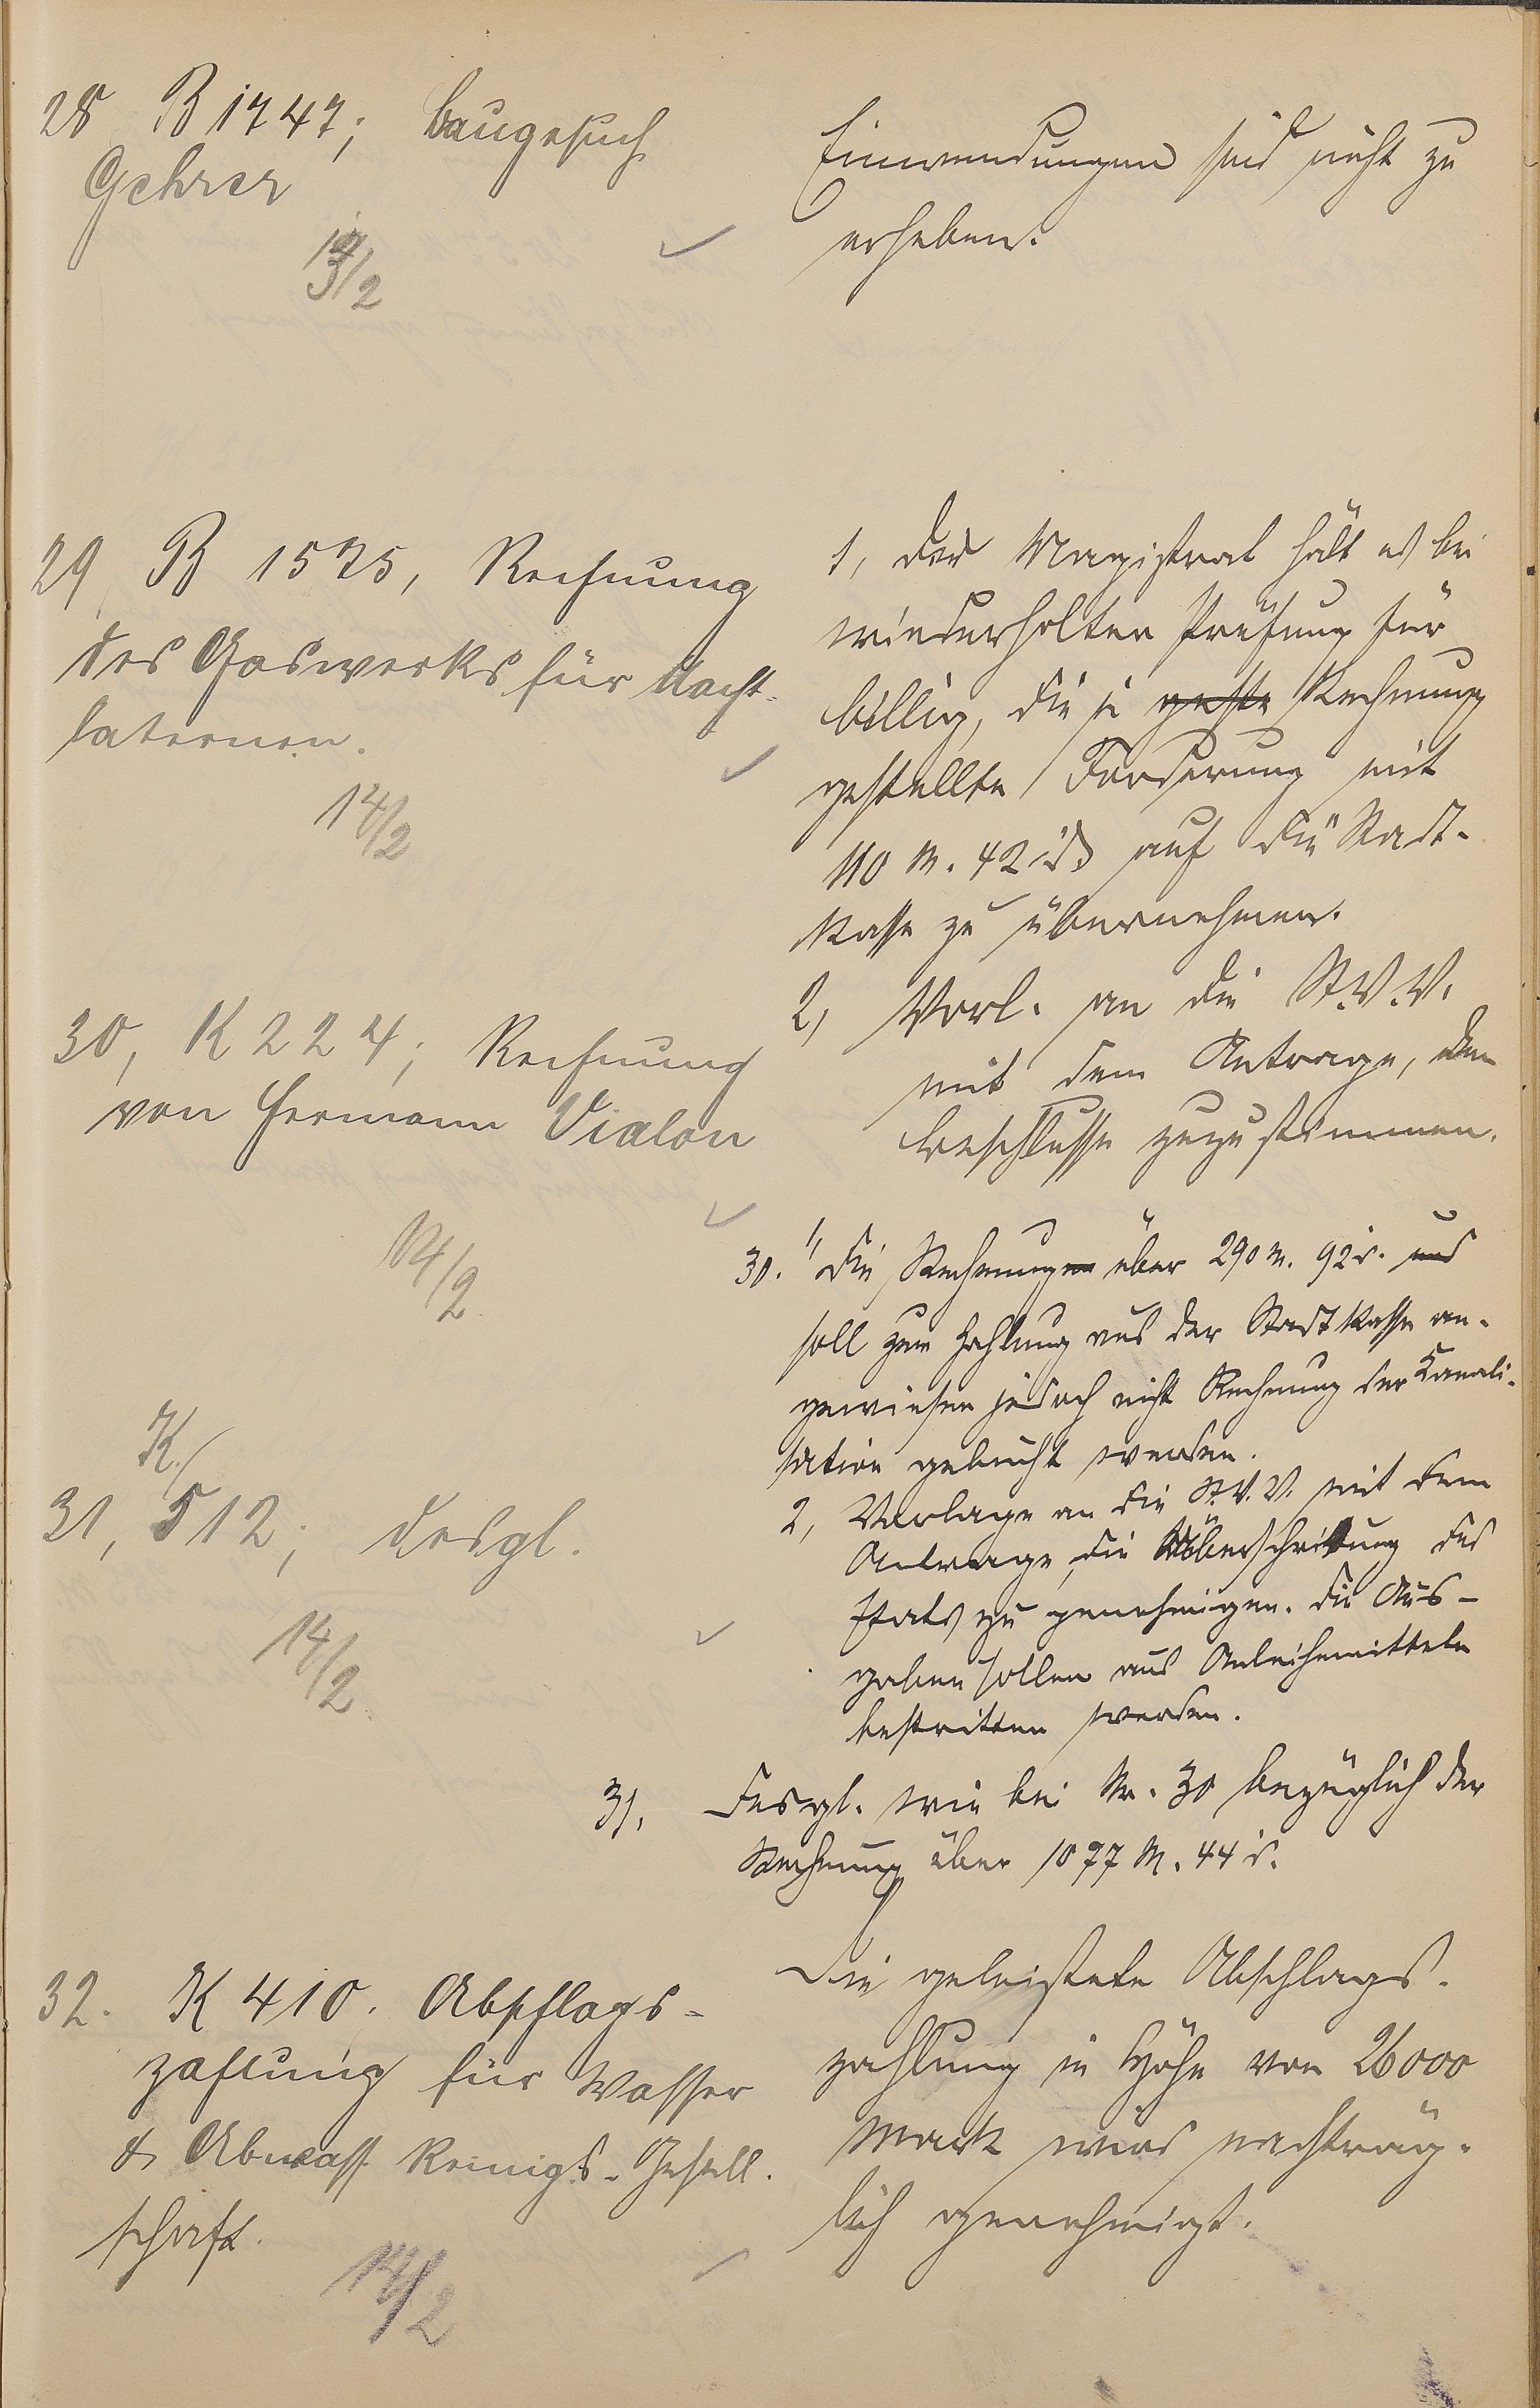 28 B 1747; Baugesuch
Gehrer
Einwendungen sind nicht zu
erheben.
29, B 1575, Rechnung
des Gaswerks für Nacht-
laternen.
14/2
1, Der Magistrat hält es bei
wiederholter Prüfung für
billig, die in Rechnung
gestellte Forderung mit
110 M. 42 ₰ auf die Stadt-
kasse zu übernehmen.
2, Vorl. an die St.V.V.
mit dem Antrage, dem
Beschlusse zuzustimmen.
30, K 224; Rechnung
von Hermann Vialon
14/2
30. 1, Die Rechnungen über 290 M. 92 ₰. und
soll zur Zahlung aus der Stadtkasse an-
gewiesen jedoch nicht Rechnung der Kanali-
sation gebucht werden.
2, Vorlage an die St.V.V. mit dem
Antrage, die Überschreitung des
Etats zu genehmigen. Die Aus-
gaben sollen aus Anleihemitteln
bestritten werden.
K.
31, 512; desgl.
14/2
31. Desgl. wie bei Nr. 30 bezüglich der
Rechnung über 1077 M. 44 ₰.
32. K 410. Abschlags-
zahlung für Wasser
& Abwass. Reinigs.-Gesell-
schaft.
14/2
Die geleistete Abschlags-
zahlung in Höhe von 26000
Mark wird nachträg-
lich genehmigt.